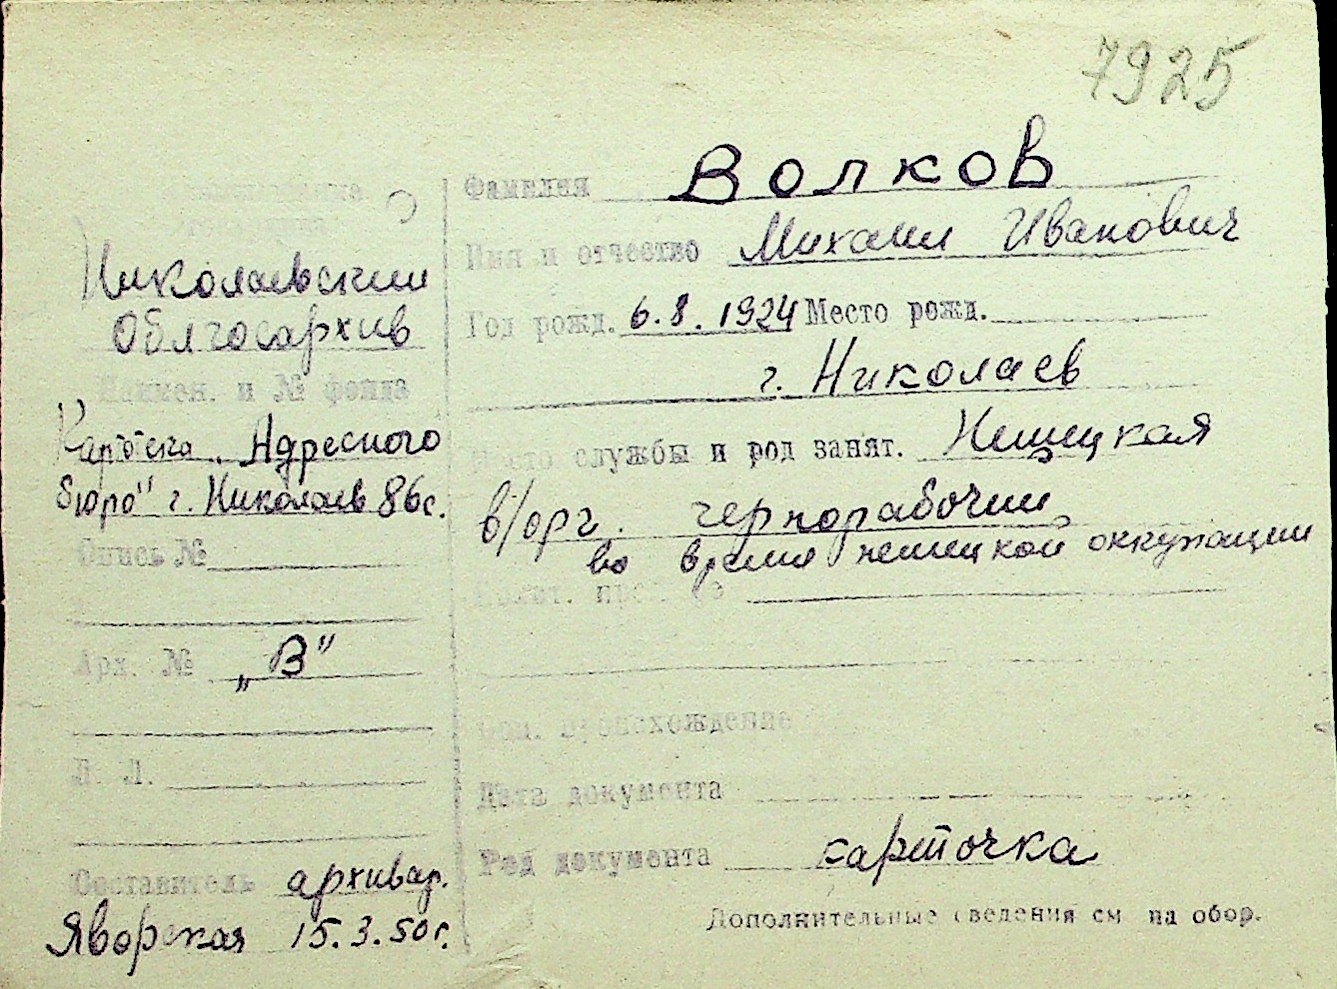 7925
Фамилия Волков
Имя и отчество Михаил Иванович
Год рожд. 6.8.1924 Место рожд.
г. Николаев
Место службы и род занят. Немецкая
в/орг. чернорабочий
во время немецкой оккупации
Соц. происхождение
Дата документа
Род документа карточка
Дополнительные сведения см на обор.
Николаевский
Облгосархив
Наимен. и № фонда
Картотека „Адресного
бюро" г. Николаев 86с.
Опись №
Арх. № „В"
Л. Л.
Составитель архивар.
Яворская 15.3.50г.